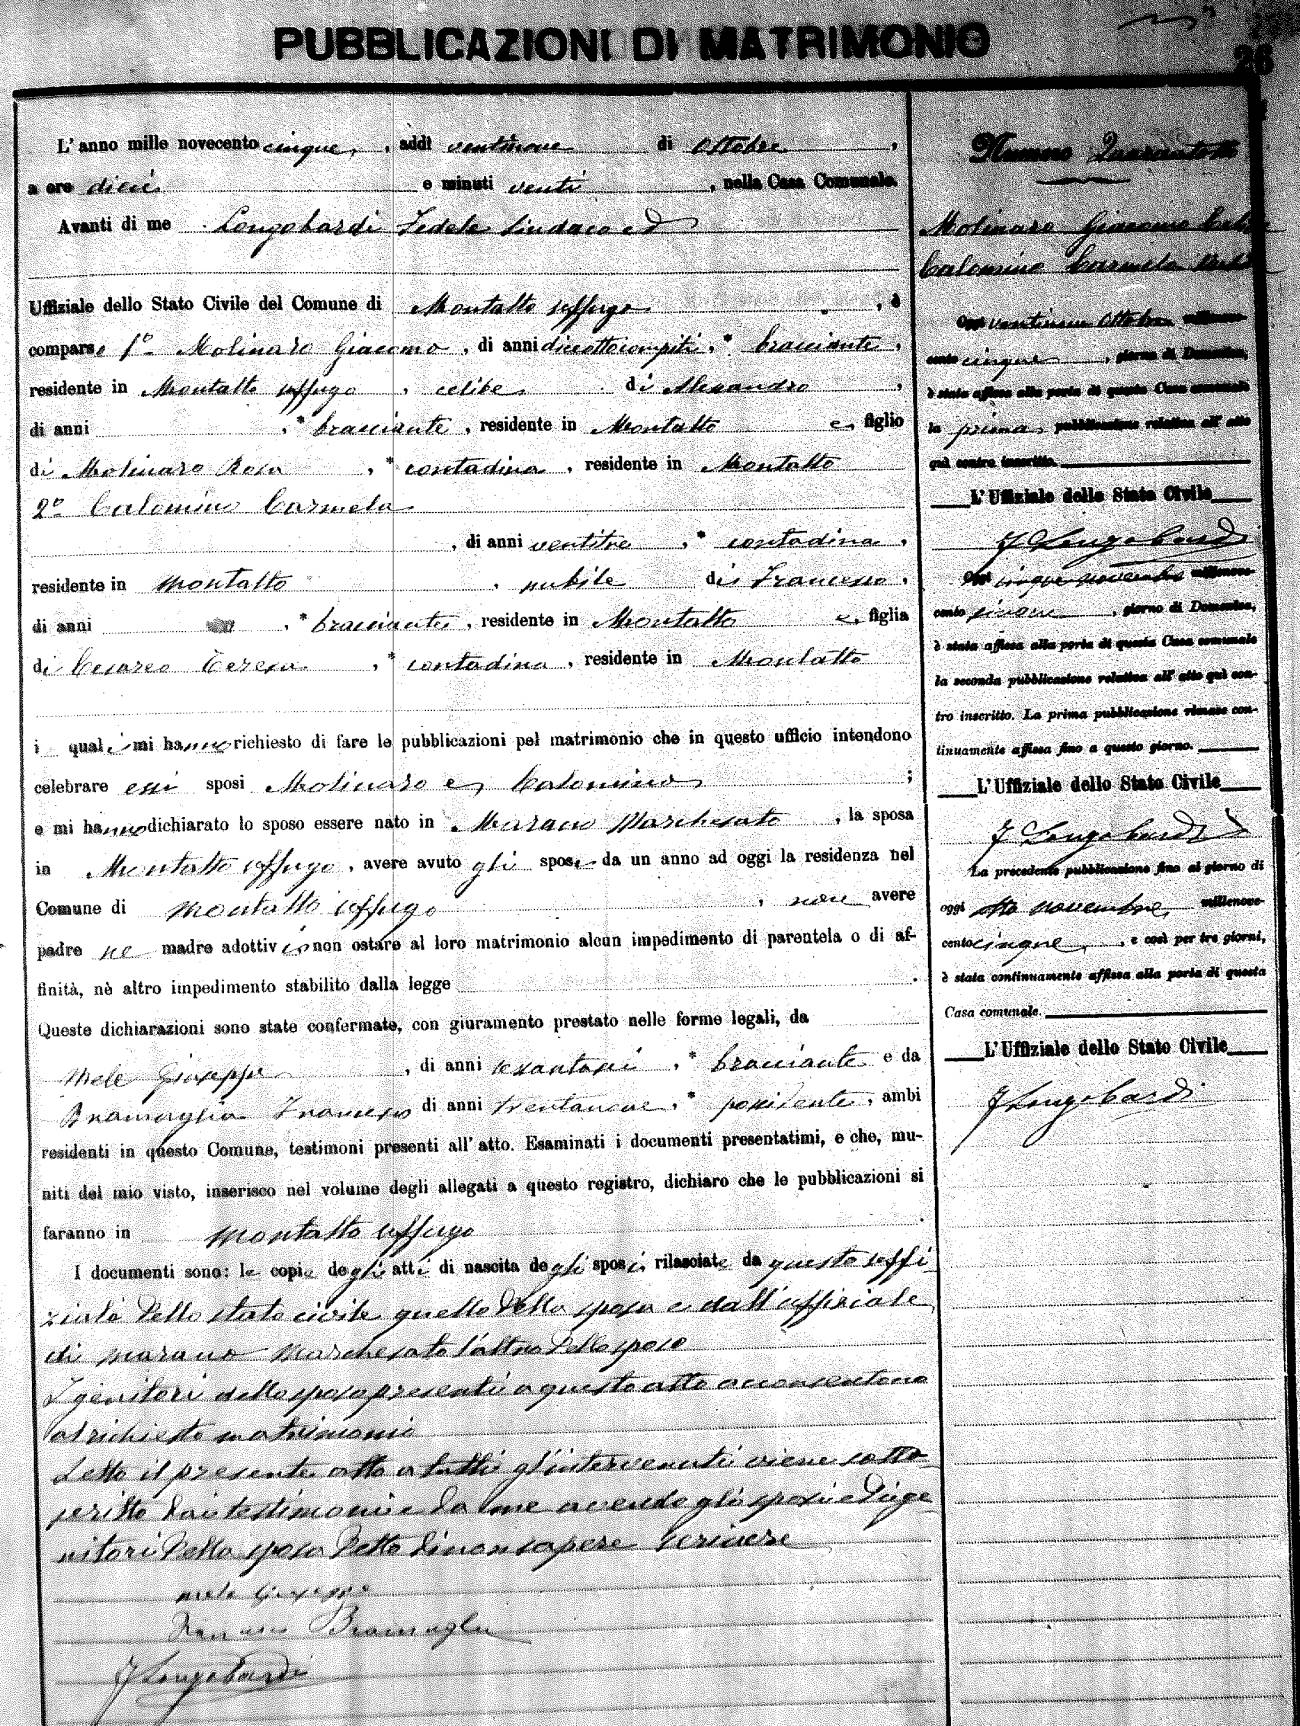 PUBBLICAZIONI DI MATRIMONIO
26
L'anno mille novecento cinque, addì ventinove di Ottobre,
a ore dieci e minuti venti, nella Casa Comunale.
Avanti di me Longobardi Fedele Sindaco ed
Uffiziale dello Stato Civile del Comune di Montalto Uffugo, è
comparso 1º Molinaro Giacomo, di anni diciotto compiti, * bracciante,
residente in Montalto Uffugo, celibe, di Alesandro,
di anni , * bracciante, residente in Montalto e figlio
di Molinaro Rosa, * contadina, residente in Montalto
2º Calomino Carmela
, di anni ventitre, * contadina,
residente in Montalto, nubile di Francesco,
di anni , * bracciante, residente in Montalto e, figlia
di Cesareo Teresa, * contadina, residente in Montalto
i quali mi hanno richiesto di fare le pubblicazioni pel matrimonio che in questo ufficio intendono
celebrare essi sposi Molinaro e Calomino ;
e mi hanno dichiarato lo sposo essere nato in Marano Marchesato, la sposa
in Montalto Uffugo, avere avuto gli sposi da un anno ad oggi la residenza nel
Comune di Montalto Uffugo, non avere
padre ne madre adottivi; non ostare al loro matrimonio alcun impedimento di parentela o di af-
finità, nè altro impedimento stabilito dalla legge .
Queste dichiarazioni sono state confermate, con giuramento prestato nelle forme legali, da
Mele Giuseppe, di anni sesantasei, * bracciante e da
Bramaglia Francesco di anni trentanove, * possidente, ambi
residenti in questo Comune, testimoni presenti all'atto. Esaminati i documenti presentatimi, e che, mu-
niti del mio visto, inserisco nel volume degli allegati a questo registro, dichiaro che le pubblicazioni si
faranno in Montalto Uffugo
I documenti sono: le copie degli atti di nascita degli sposi, rilasciate da questo uffi-
ziale dello stato civile quello della sposa e dall'uffiziale
di Marano Marchesato l'altro dello sposo
I genitori dello sposo presenti a questo atto acconsentono
al richiesto matrimonio
Letto il presente atto a tutti gl'intervenuti viene sotto-
scritto dai testimoni e da me avendo gli sposi ed i ge
nitori della sposa detto di non sapere scrivere
Mele Giuseppe
Francesco Bramaglia
F Longobardi
Numero Quarantotto
Molinaro Giacomo Celibe
Calomino Carmela Nubile
Oggi ventinove Ottobre millenove-
cento cinque, giorno di Domenica,
è stata affissa alla porta di questa Casa comunale
la prima pubblicazione relativa all'atto
quì contro inscritto.
L'Uffiziale dello Stato Civile
F Longobardi
Oggi cinque novembre millenove-
cento cinque, giorno di Domenica,
è stata affissa alla porta di questa Casa comunale
la seconda pubblicazione relativa all'atto quì con-
tro inscritto. La prima pubblicazione rimase con-
tinuamente affissa fino a questo giorno.
L'Uffiziale dello Stato Civile
F Longobardi
La precedente pubblicazione fino al giorno di
oggi otto novembre millenove-
cento cinque, e così per tre giorni,
è stata continuamente affissa alla porta di questa
Casa comunale.
L'Uffiziale dello Stato Civile
F Longobardi